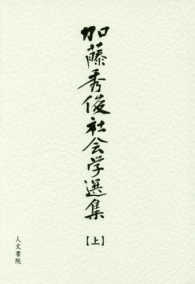 加藤秀俊社会学選集
【上】
人文書院